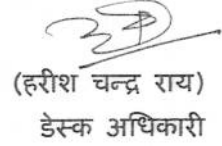 (हरीश चन्द्र राय)
डेस्क अधिकारी